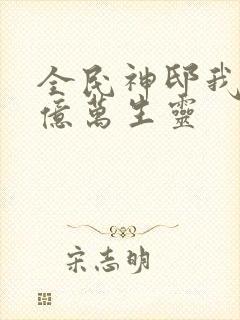 全民神邸我
億萬生靈
宋志明